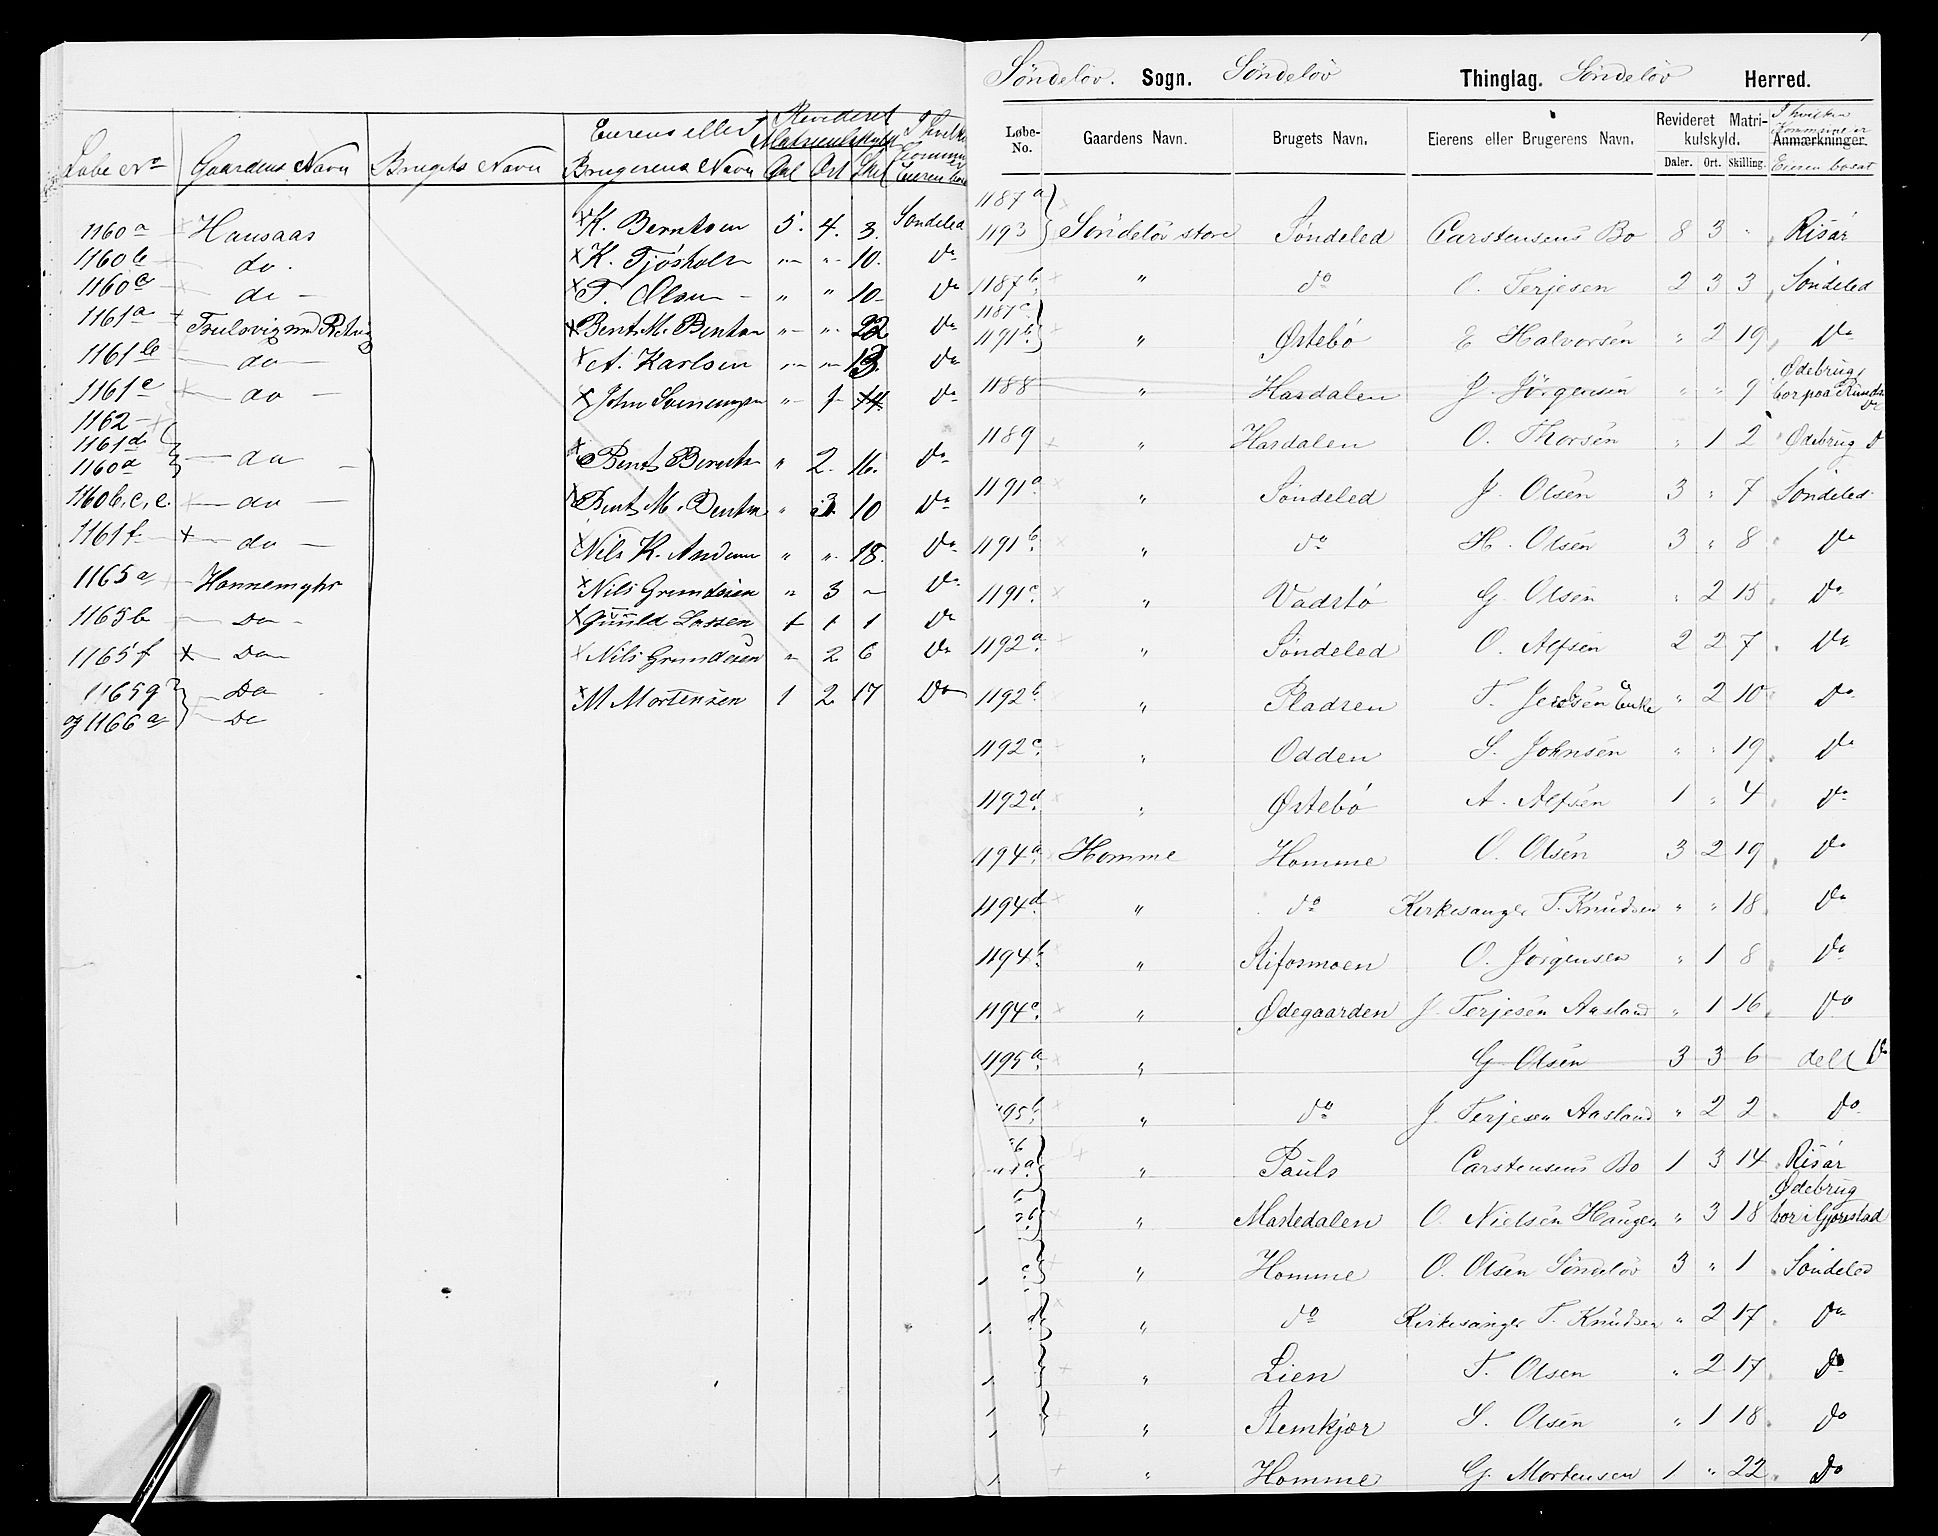 Løbe No Gaardens Navn Brugets Navn Eierens eller Brugerens Navn Revideret Matrikulskyld Dal Ort Skil I hvilken Commune er Eieren bosat
1160a Hansaas K. Berntsen 5. 4. 3. Søndeled
1160b do. K. Tjøsholm " " 10. Do
1160c do T. Olsen " " 10 Do
1161a Bent M. Bentsen " " 22 Do
1161b do A. Karlsen " " 13. Do
1161c do John " 1 14 Do
1162
1161d
1160d do Bent Berntsen " 2. 16. Do
1160b.c.e. do Bent M. Bentsen " 3. 10 Do
1161f do Nils K. Andersen " " 18. Do
1165a Hannemyhr Nils Grundesen " 3 " Do
1165b Do Guuld Lassen 1 1 1 Do
1165f Do Nils Grundesen " 2 6 Do
1165g Do M Mortensen 1 2 17 Do
og 1166a Do
Søndeløv. Sogn. Søndeløv Thinglag. Søndeløv Herred.
Løbe-No. Gaardens Navn. Brugets Navn. Eierens eller Brugerens Navn. Revideret Matrikulskyld. Daler. Ort. Skilling. Anmærkninger. I hvilken Kommune er Eieren bosat
1187a
1193 Søndeløv store Søndeled Carstensens Bo 8 3 " Risør
1187b " do O. Terjesen 2 3 3 Søndeled
1187c
1191b " Ørtebø E Halvorsen " 2 19 Do
1188 " Hasdalen J. Jørgensen " " 9 Ødebrug, bor paa
1189 " Hasdalen O. Thorsen " 1 2 Ødebrug D
1191a " Søndeled J. Olsen 3 " 7 Søndeled
1191b " do H. Olsen 3 " 8 Do
1191c " Vadstø G. Olsen " 2 15 Do
1192a " Søndeled O. Alfsen 2 2 7 Do
1192b " Pladsen T. Enke " 2 10 Do
1192c " Odden S. Johnsen " " 19 Do
1192d " Ørtebø A. Alfsen 1 " 4 Do
1194a Homme Homme O. Olsen 3 2 19 Do
1194d " do Kirkesanger T. Knudsen " " 18 Do
1194b " Stifosmoen O. Jørgensen " 1 8 Do
1194c " Ødegaarden J. Terjesen Aasland " 1 16 Do
1195a " G Olsen 3 3 6 delt Do
1195b " do J. Terjesen Aasland " 2 2 Do
a " Pauls Carstensens Bo 1 3 14 Risør
" Mastedalen O. Nielsen Haugen " 3 18 Ødebrug bor i Gjerestad
c " Homme O. Olsen Søndeløv 3 " 1 Søndeled
" do Kirkesanger T. Knudsen " 2 17 Do
" Lien T. Olsen " 2 17 Do
" Stemkjær S. Olsen " 1 18 Do
" Homme G. Mortensen 1 " 22 Do